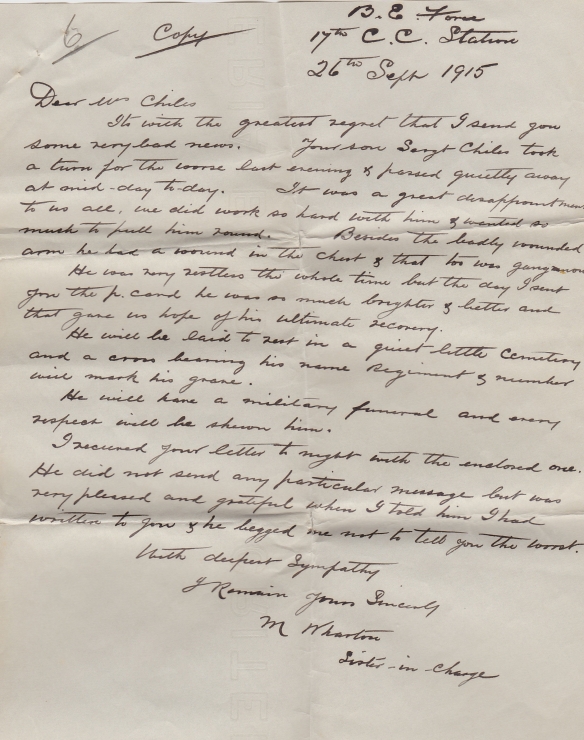 6 Copy
B. E. Force
17th C. C. Station
26th Sept 1915
Dear Mrs Chiles
Its with the greatest regret that I send you
some very bad news. Your son Sergt Chiles took
a turn for the worse last evening & passed quietly away
at mid-day to-day. It was a great disappointment
to us all, we did work so hard with him & wanted so
much to pull him round. Besides the badly wounded
arm he had a wound in the chest & that too was gangrenous
He was very restless the whole time but the day I sent
you the p. card he was so much brighter & better and
that gave us hope of his ultimate recovery.
He will be laid to rest in a quiet little Cemetery
and a cross bearing his name Regiment & number
will mark his grave.
He will have a military funeral and every
respect will be shewn him.
I received your letter to night with the enclosed one.
He did not send any particular message but was
very pleased and grateful when I told him I had
written to you & he begged me not to tell you the worst.
With deepest Sympathy
I Remain Yours Sincerely
M Wharton
Sister-in-Charge